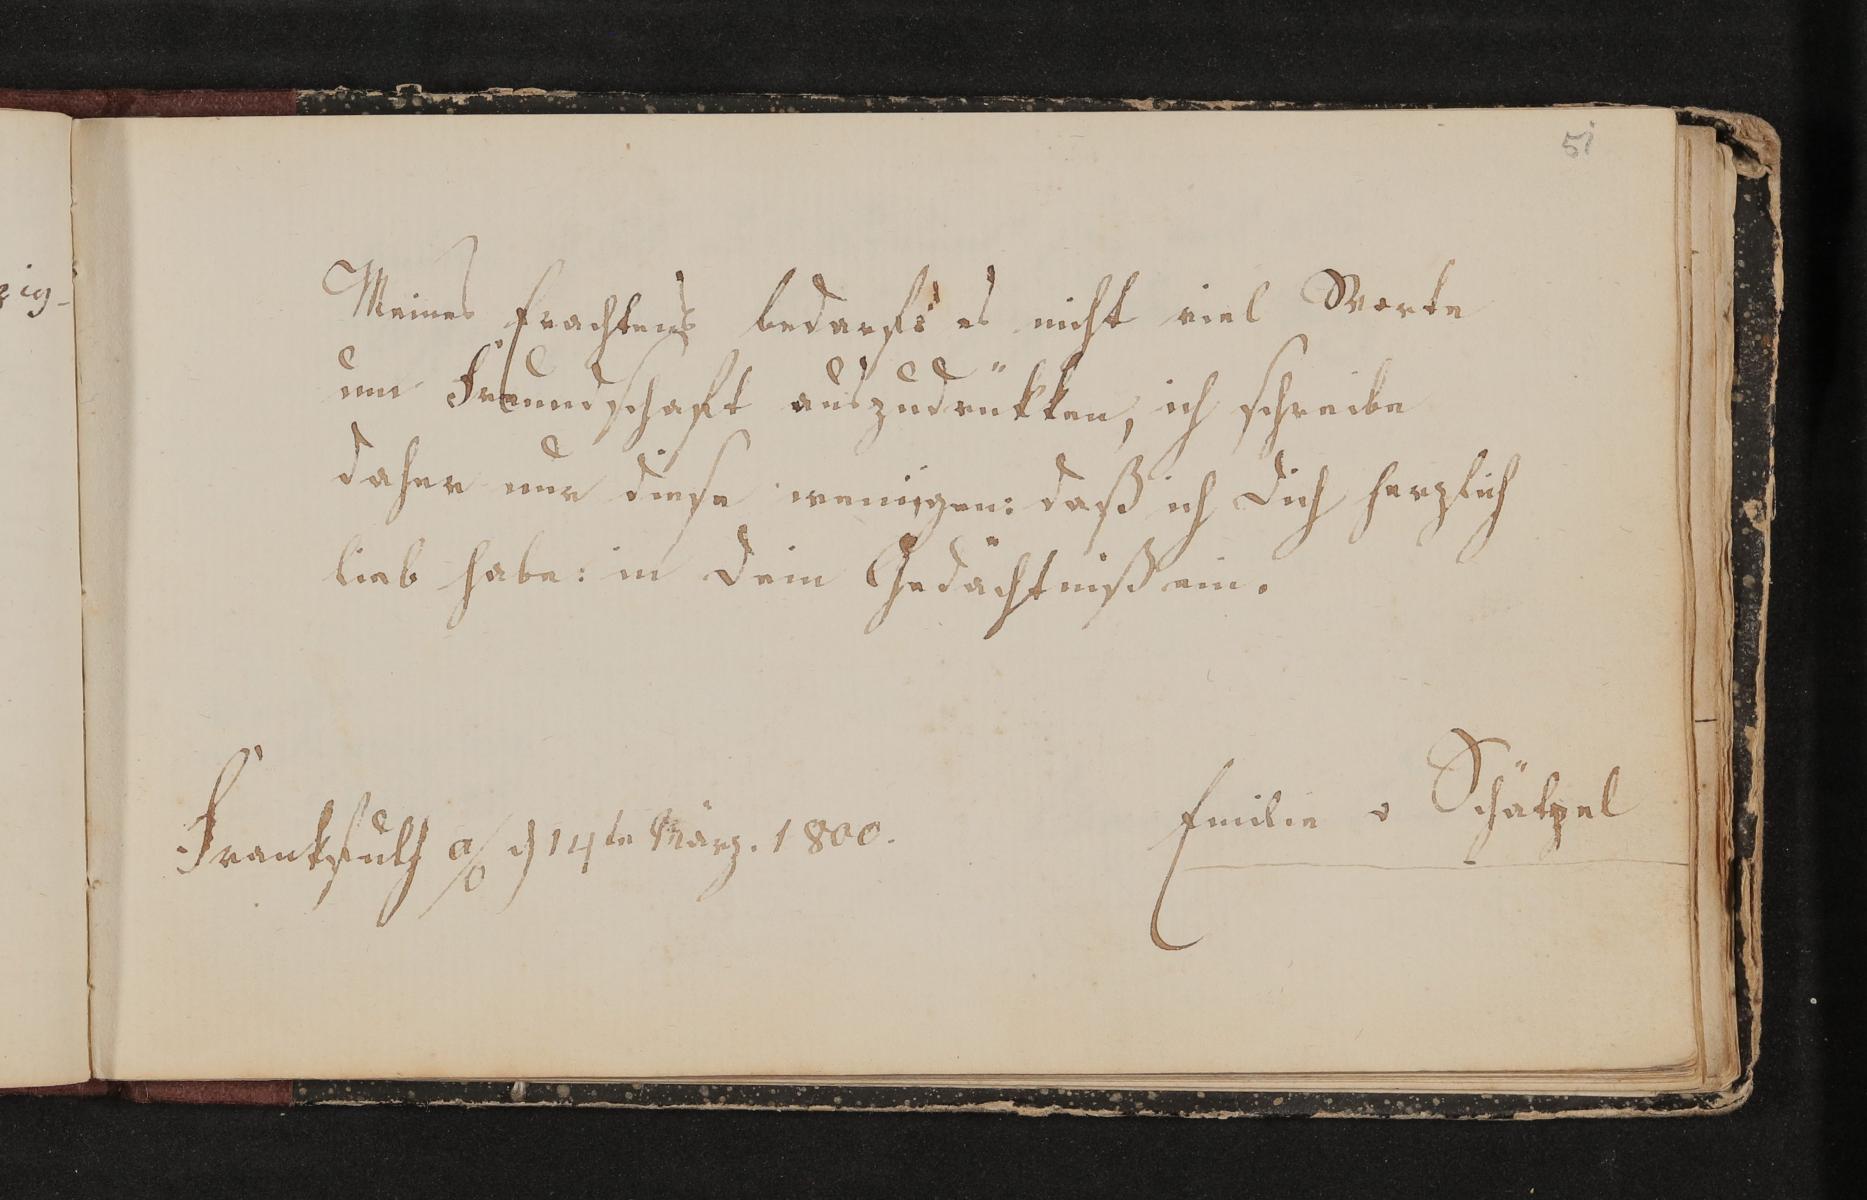 51
zig-
Meines Erachtens bedarfs es nicht viel Worte
um Freundschaft auszudrükken, ich schreibe
daher nur diese wenigen: daß ich Dich herzlich
lieb habe: in Dein Gedächtniß ein.
Frankfuth a/O d 14te März. 1800.
Emilie v Schätzel